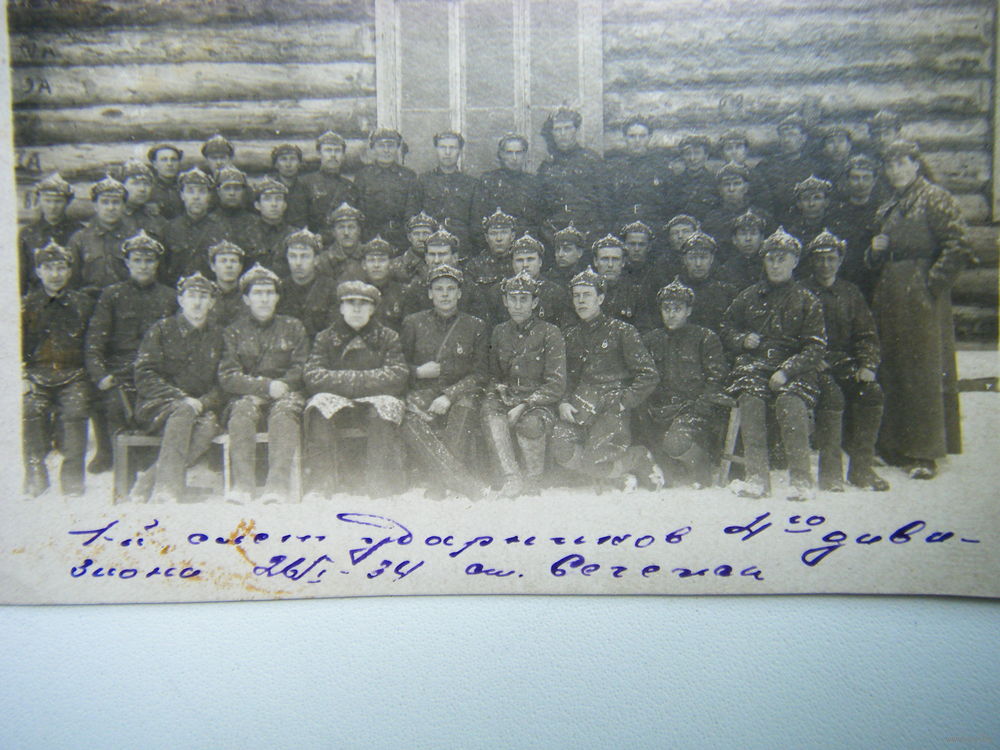 1-й слет ударников 4го диви-
зиона 26/I-34 ст.